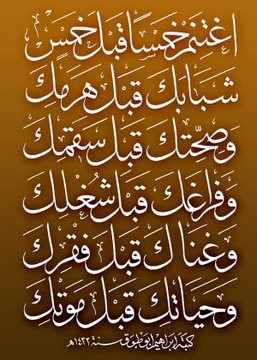 اغتنم خمسا قبل خمس
شبابك قبل هرمك
وصحتك قبل سقمك
وفراغك قبل شغلك
وغناك قبل فقرك
وحياتك قبل موتك
كتبه ابراهيم ابو طوق سنة ١٤٢٢هـ